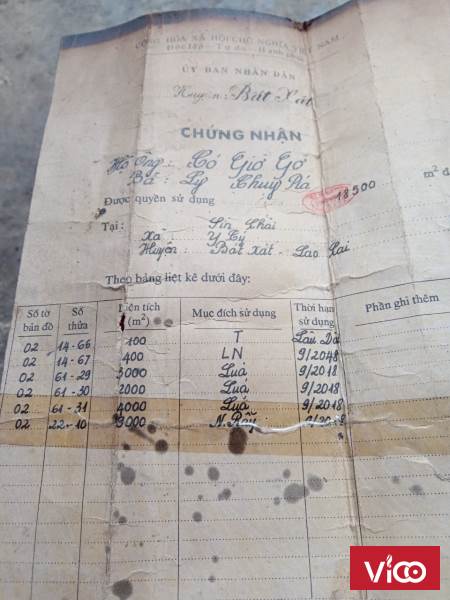 CỘNG HÒA XÃ HỘI CHỦ NGHĨA VIỆT NAM
Độc lập - Tự do - Hạnh phúc
ỦY BAN NHÂN DÂN
Huyện: Bát Xát
CHỨNG NHẬN
Hộ Ông: Có Giờ Gơ
Bà: Ly Thuy Rá
Được quyền sử dụng 18500 m² đ
Tại: Sín Chải
Xã Y Tý
Huyện: Bát Xát - Lao Cai
Theo bảng liệt kê dưới đây:
Số tờ bản đồ Số thửa Diện tích (m²) Mục đích sử dụng Thời hạn sử dụng Phần ghi thêm
02 14-66 100 T Lâu Dài
02 14-67 400 LN 9/2048
02 61-29 3000 Luá 9/2018
02 61-30 2000 Luá 9/2018
02 61-31 4000 Luá 9/2018
02 22-10 N.Rẫy 9/2018
vioo